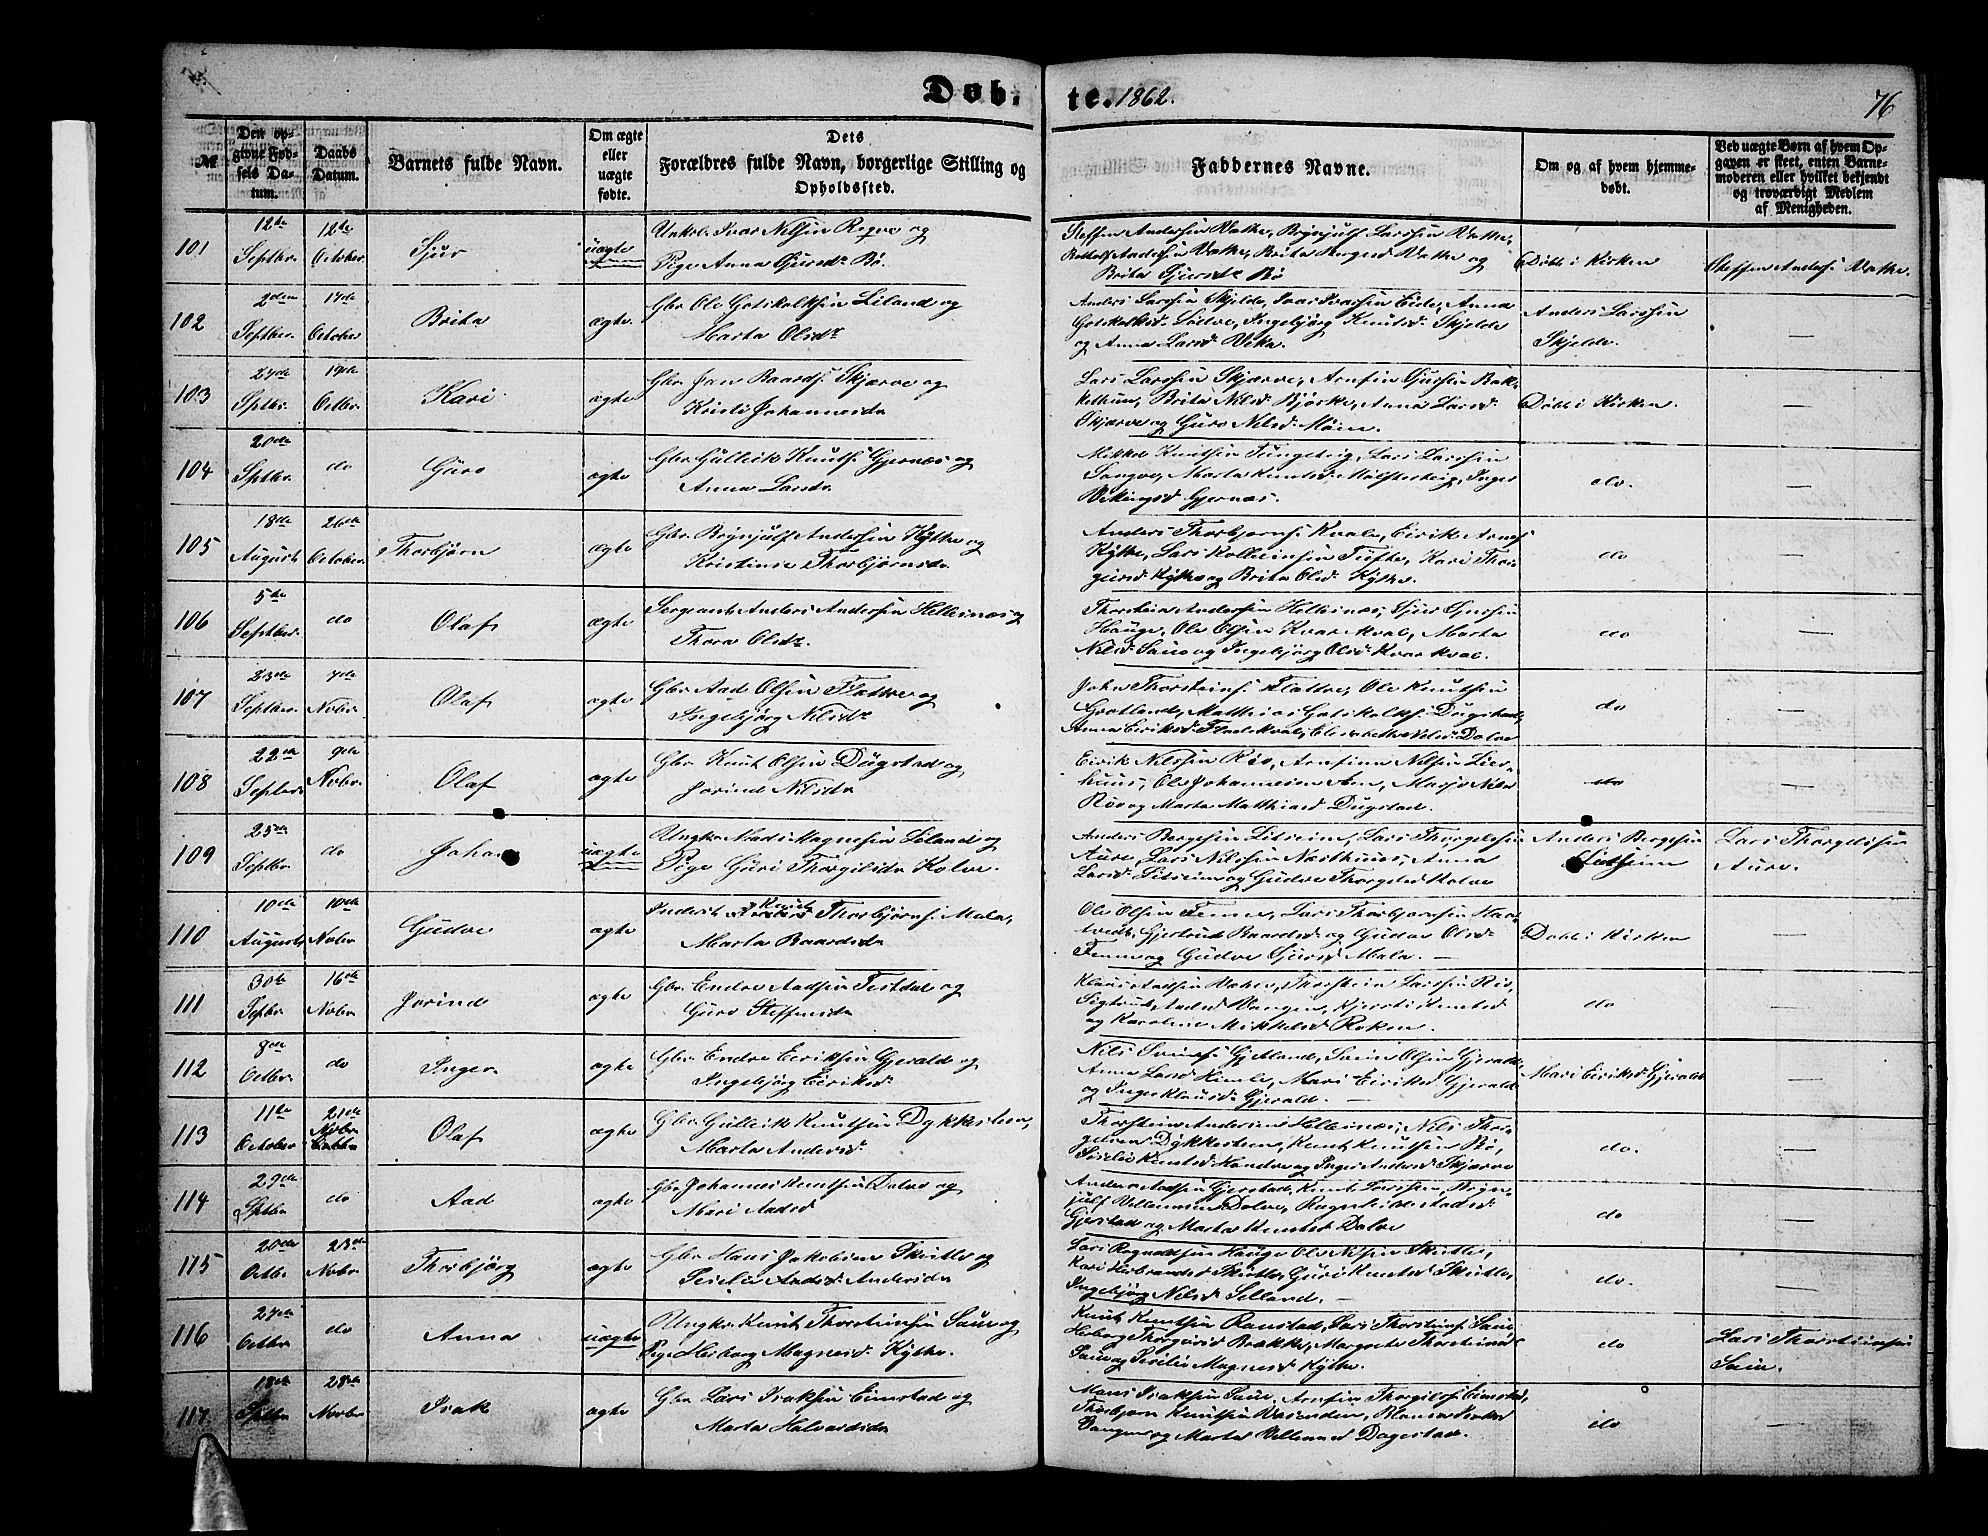 Døb-
te. 1862.
76
№
Den op-
givne Fød-
sels Da-
tum.
Daabs
Datum.
Barnets fulde Navn.
Om ægte
eller
uægte
fødte.
Dets
Forældres fulde Navn, borgerlige Stilling og
Opholdssted.
Faddernes Navne.
Om og af hvem hjemme-
døbt.
Ved uægte Børn af hvem Op-
gaven er skeet, enten Barne-
moderen eller hvilket bekjendt
og troværdigt Medlem
af Menigheden.
101
12te
Septbr.
12te
October
Sjur
uægte
Ivar Nilsen Reqve og
Pige Anna Sjursdr Bø.
Steffen Andersen Væthe, Brynjulf Larssen Væthe,
Brita Sjursdr Bø
Døbt i Kirken
Steffen Anders. Væthe.
102
2den
Septbr.
October
Brita
ægte
Gbr. Ole Gotskalksen Liland og
Marta Olsdr
Anders Larssen Skjelde, Ivar Ivarsen Eide, Anna
Gotskalksd. Lødve, Ingebjørg Knutsd. Skjelde
og Anna Larsd.
Anders Larssen
Skjelde.
—
103
Sptbr.
19de
Octbr.
Kari
ægte
Gbr. Jan Baards. Skjærve og
Kristi Johannesdr
Lars Larssen Skjærve, Arnfin Sjursen Bak-
kethun, Brita Nilsd. Bjørke, Anna Larsd.
Skjærve og Guro Nilsd. Møen.
Døbt i Kirken.
—
104
20de
Sptbr.
do
Guro
ægte
Gbr. Gulleik Knuts. Gjernæs og
Anna Larsdr.
Mikkel Knutsen Tungeteig, Lars Larssen
Vikingsd. Gjernæs.
do.
—
105
18de
August
26de
October
Thorbjørn
ægte
Gbr. Brynjulf Andersen Kythe og
Kristense Thorbjørnsdr.
Anders Thorbjørns. Kvale, Eirik Arnes.
Kythe, Lars Kolbeinsen Tufte, Kari Thor-
geirsd. Kythe og Brita Olsd. Kythe.
do
—
106
5te
Septbr.
do
Olaf
ægte
Sergeant Anders Andersen Helleinæs og
Thora Olsdr.
Thorstein Andersen Helleinæs, Sjur Sjursen
Hauge, Ole Olsen Kvarekval, Marta
Nilsd. Saue og Ingebjørg Olsd. Kvarekval.
do
—
107
23de
Septbr.
Novbr.
Olaf
ægte
Gbr. Aad Olsen Flatve og
Ingebjørg Nilsdr
John Thorsteins. Flatve, Ole Knutsen
Grotland, Matthias Gotskalks. Dugstad,
Anna Eiriksd. Flatekval, Elisabetha Nilsd. Dolve
do
—
108
22de
Septbr.
9de
Novbr.
Olaf
ægte
Gbr. Knut Olsen Dugstad og
Jorind Nilsdr
Eirik Nilssen Røv, Arnfinn Nilsen Lier-
huus, Ole Johannesen
Røv og Marta Matthiasd. Dugstad.
do
—
109
25de
Septbr
do
Johan
uægte
Ungkr. Mads Magnesen Liland og
Pige Guri Thorgilsdr Kolve.
Anders Bergesen Litseim, Lars Thorgilssen
Aure, Lars Nilssen Næsthuus, Anna
Larsd. Litseim og Gudve Thorgilsd. Kolve
Anders Bergesen
Litseim
Lars Thorgilssen
Aure.
110
10de
August
10de
Novbr
Gudve
ægte
Inderst Knut Thorbjørns. Mala,
Marta Baardsdr
Ole Olsen Fenne, Lars Thorbjørnsen
Gjertrud Baardsd. og Gudve Olsd.
Fenne og Gudve Sjursd. Mala. —
Døbt i Kirken
—
111
30te
Septbr
16de
Novbr
Jorind
ægte
Gbr. Endre Aadsen Tesdal og
Guro Steffensdr
Klaus Aadsen Væhe, Thorstein Larssen Røv,
Sigtrud Aadsd. Vangen, Kjersti Knutsd.
og Karoline Mikkelsd. Rokne.
do
—
112
8de
Octbr.
do
Inger
ægte
Gbr. Endre Eiriksen Gjerald og
Ingebjørg Eiriksd.
Nils Svens. Gjetland, Svein Olsen Gjerald,
Anna Larsd. Himle, Mari Eiriksd. Gjerald
og Inger Klausd. Gjerald. —
Mari Eiriksd. Gjerald
—
113
11te
October
21de
Novbr
Olaf
ægte
Gbr. Gulleik Knutsen Dykkesteen,
Marta Andersd.
Thorstein Andersen Helleinæs, Nils Thor-
geirsen Dykkesteen, Knut Knutsen Bø,
Sesele Knutsd. og Inger Andersd. Skjærve
do.
—
114
29de
Sptbr
do
Aad
ægte
Gbr. Johannes Knutsen Dolve og
Mari Aadsd
Anders Aadsen Gjerstad, Knut Larssen, Bryn-
julf Vellemsen Dolve, Ragnhilde Aadsd.
Gjerstad og Marta Knutsd. Dolve
do
—
115
20de
Octbr.
23de
Novbr
Thorbjørg
ægte
Gbr. Hans Jakobsen Skutle og
Lars Rognaldsen Hauge, Ole Nilsen Skutle,
Kari Herbrandsd. Skutle, Guri Knutsd. Skutle,
Ingebjørg Nilsd. Selland. —
do.
—
116
27de
Octbr
do
Anna
uægte
Ungkr. Knut Thorsteinsen Saue og
Pige Herborg Magnesd. Kythe.
Knut Knutsen Ronstad, Lars Thorsteins. Saue
Herborg Thorgeirsd. Brække, Margreta Thorsteinsd.
Saue og Sesele Magnesd. Kythe.
do
Lars Thorsteinsen
Saue.
117.
18de
Sptbr
28de
Novbr
Isak
ægte
Gbr. Lars Isaksen Eimstad og
Marta Halvardsdr
Mons Isaksen Saue, Arnfin Thorgils. Eimstad,
Thorbjørn Knutsen
Vangen og Marta Vellemsd. Dagestad.
do
—